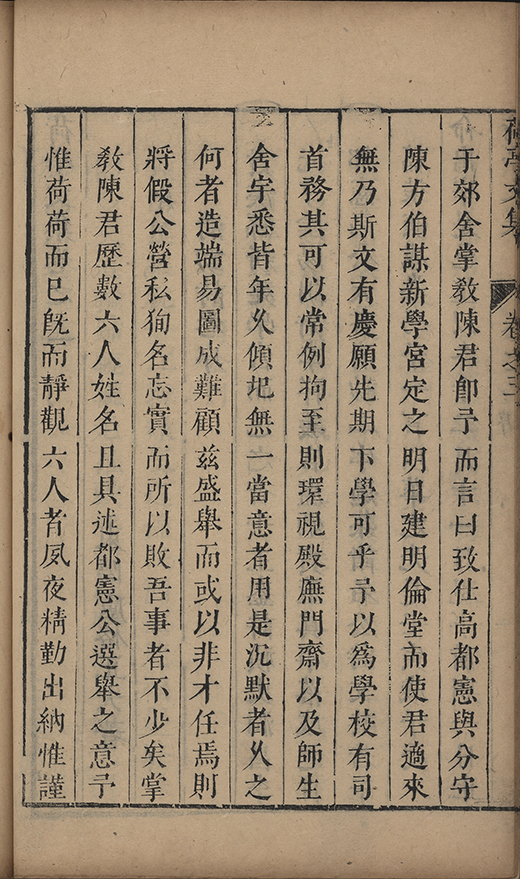 荷亭文集 卷之三
于郊舍掌敎陳君卽予而言曰致仕高都憲與分守
陳方伯謀新學宮定之明日建明倫堂而使君適來
無乃斯文有慶願先期下學可乎予以爲學校有司
首務其可以常例拘至則環視殿廡門齋以及師生
舍宇悉皆年乆傾圮無一當意者用是沉默者乆之
何者造端易圖成難顧兹盛舉而或以非才任焉則
將假公營私狥名忘實而所以敗吾事者不少矣掌
敎陳君歷數六人姓名且具述都憲公選舉之意予
惟荷荷而已旣而靜觀六人者夙夜精勤出納惟謹